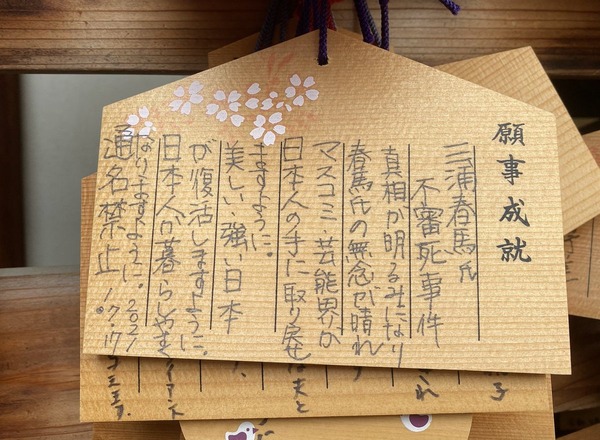 願事成就
三浦春馬氏
不審死事件
真相が明るみになり
春馬氏の無念が晴れ
マスコミ、芸能界が
日本人の手に取り戻せ
ますように。
美しい、強い日本
が復活しますように。
日本人が暮らしやすく
なりますように。2021
通名禁止
子